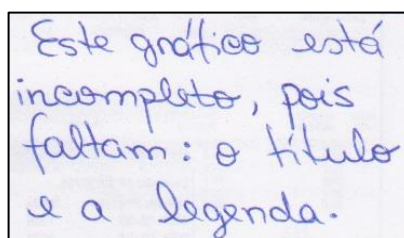 Este gráfico está
incompleto, pois
faltam: o título
e a legenda.